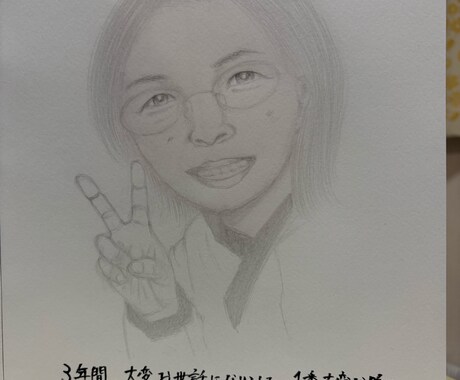 3年間 大変お世話になりました 1番大変な時